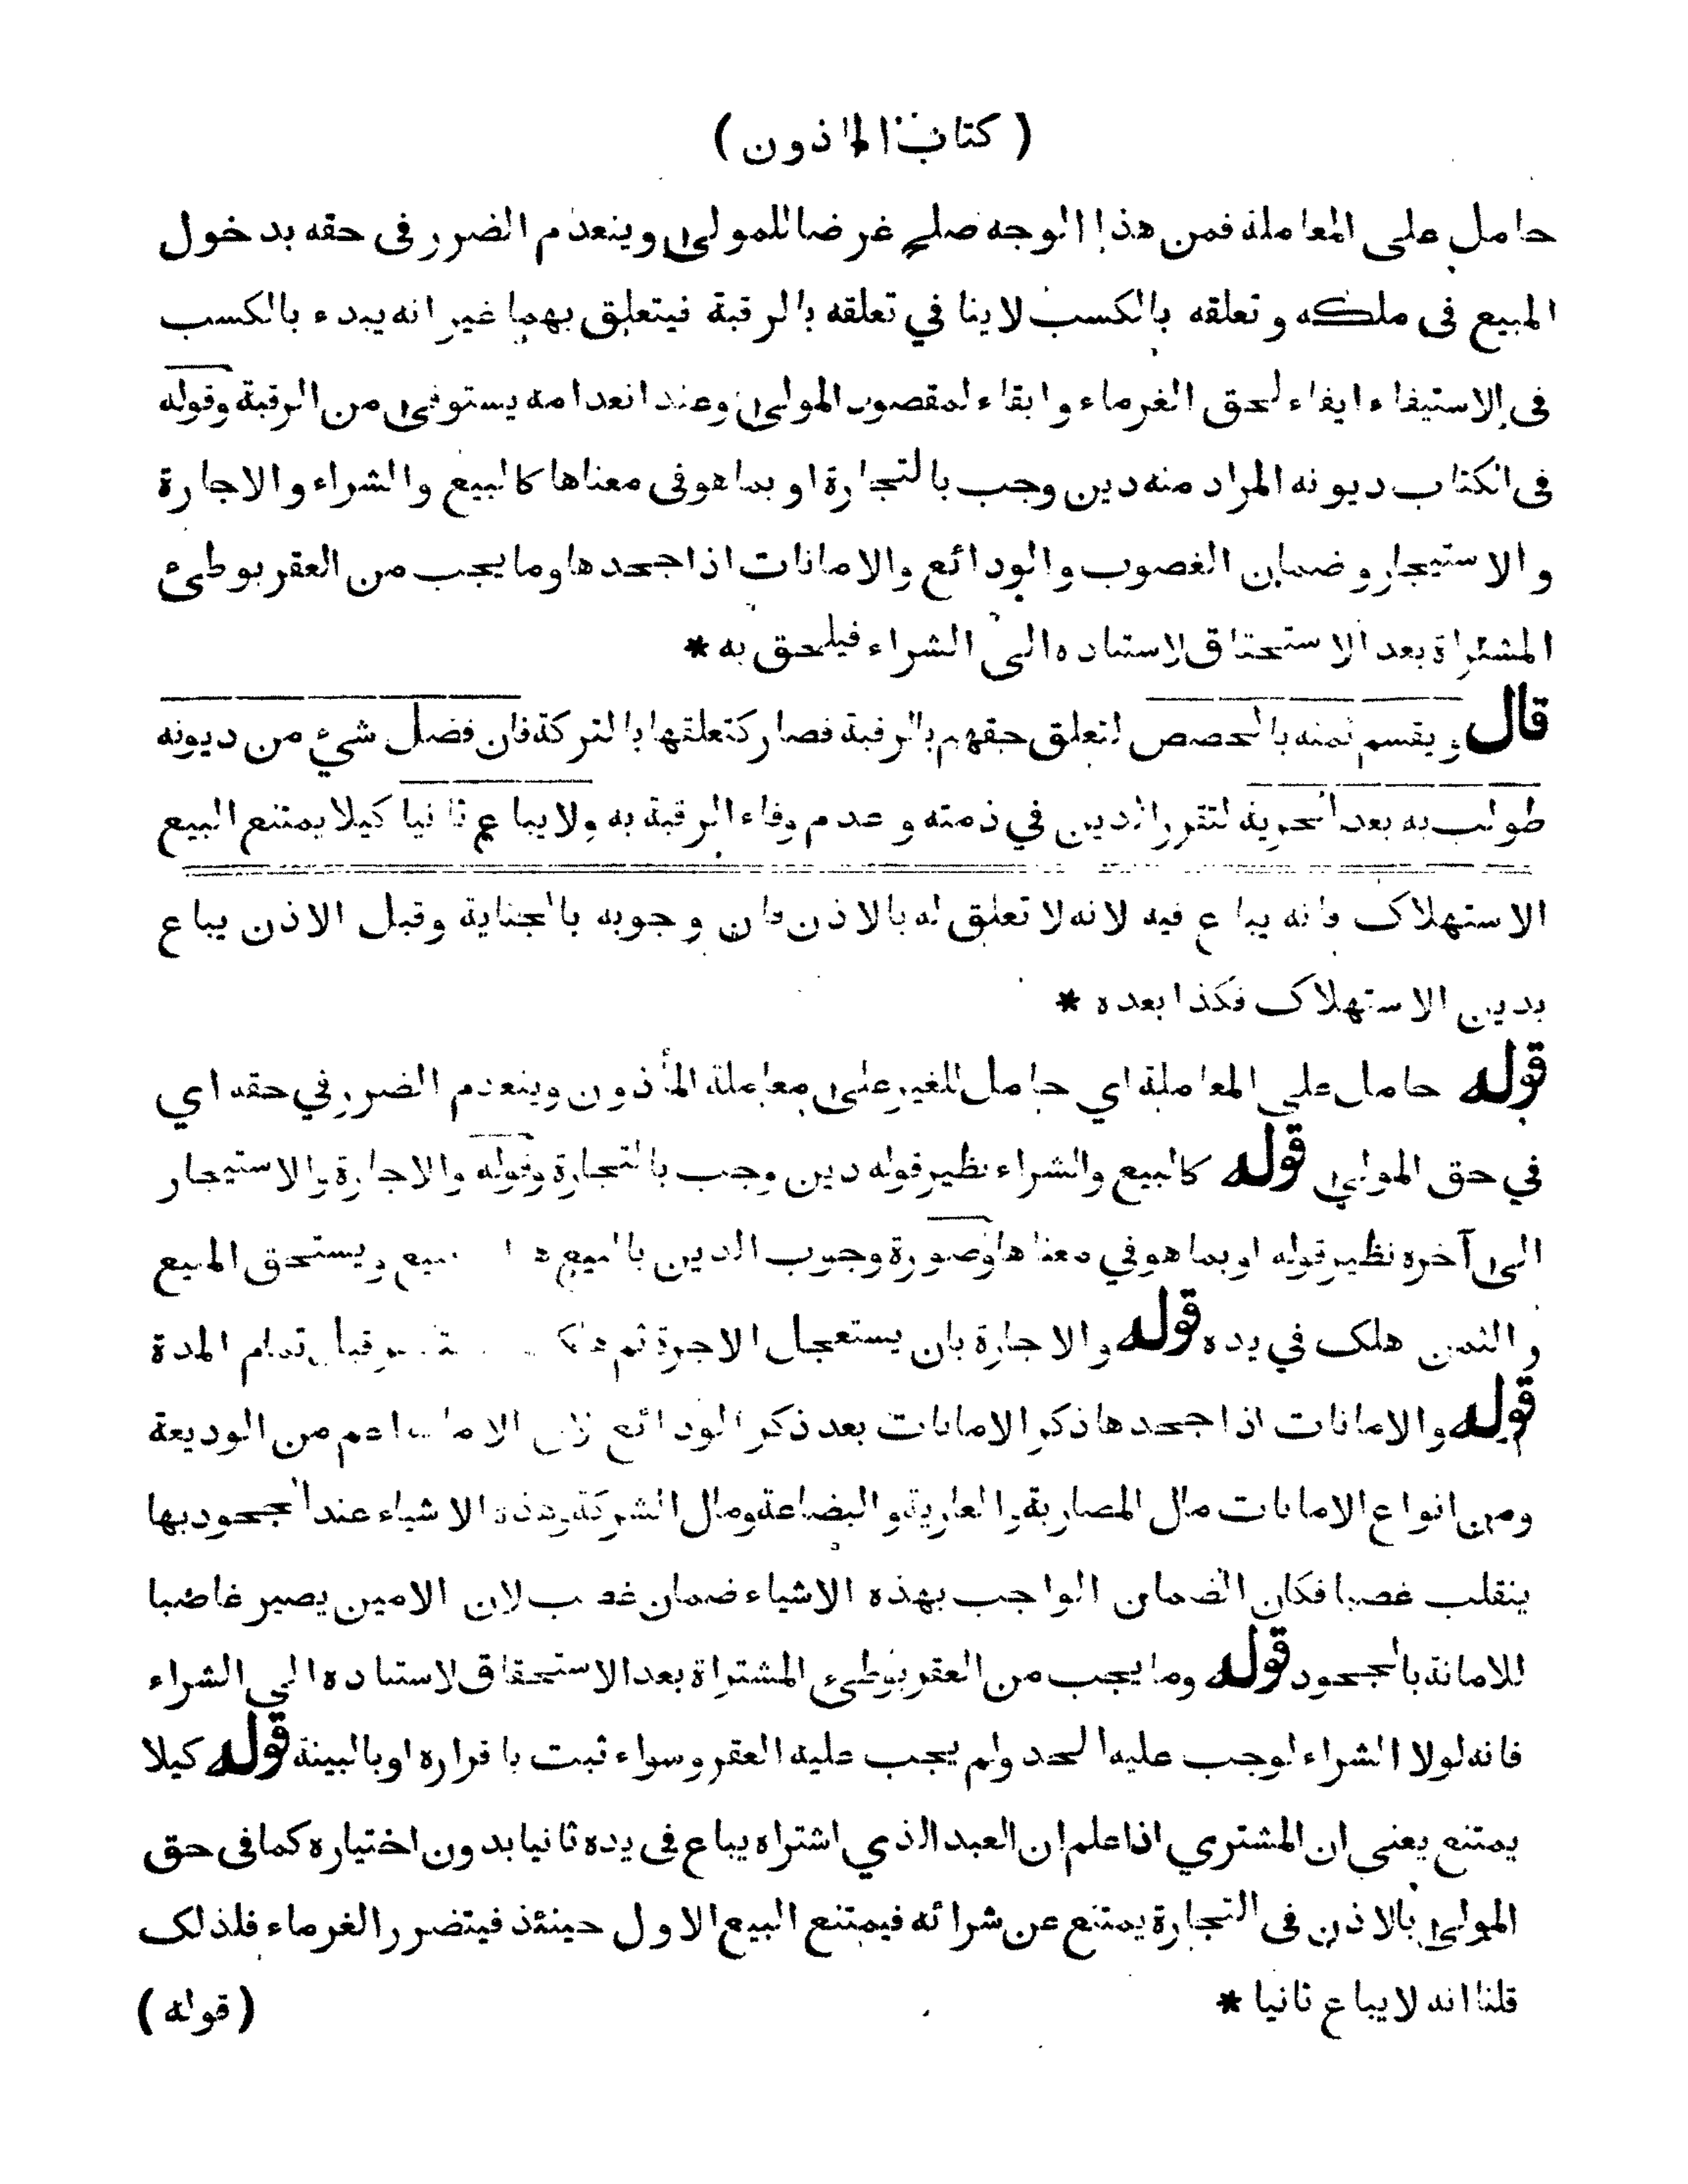 ( كتاب الماذون )
حامل على المعاملة فمن هذا الوجه صلح غرضا للمولى وينعدم الضرر فى حقه بدخول
المبيع فى ملكه وتعلقه بالكسب لاينافي تعلقه بالرقبة فيتعلق بهما غير انه يبدء بالكسب
فى الاستيفاء ايفاء لحق الغرماء وابقاء لمقصود المولى وعند انعدامه يستوفى من الرقبة وقوله
فى الكتاب ديونه المراد منه دين وجب بالتجارة او بما هو فى معناها كالبيع والشراء والاجارة
والاستيجار وضمان الغصوب والودائع والامانات اذا جحدها وما يجب من العقر بوطىء
المشتراة بعد الاستحقاق لاستناده الى الشراء فيلحق به *
قال ويقسم ثمنه بالحصص لتعلق حقهم بالرقبة فصار كتعلقها بالتركة فان فضل شيء من ديونه
طولب به بعد الحرية لتقرر الدين في ذمته وعدم وفاء الرقبة به ولا يباع ثانيا كيلا يمتنع البيع
الاستهلاك فانه يباع فيه لانه لا تعلق له بالاذن فان وجوبه بالجناية وقبل الاذن يباع
بدين الاستهلاك فكذا بعده *
قوله حامل على المعاملة اي حامل للغير على معاملة المأذون وينعدم الضرر في حقه اي
في حق المولى قوله كالبيع والشراء نظير قوله دين وجب بالتجارة وقوله والاجارة والاستيجار
الى آخره نظير قوله او بما هو في معناها وصورة وجوب الدين بالبيع ويستحق المبيع
والثمن هلك في يده قوله والاجارة بان يستعجل الاجرة ثم قبل تمام المدة
قوله والامانات اذا جحدها ذكر الامانات بعد ذكر الودائع اعم من الوديعة
ومن انواع الامانات مال المضاربة والعارية والبضاعة ومال الشركة وهذه الاشياء عند الجحود بها
ينقلب غصبا فكان الضمان الواجب بهذه الاشياء ضمان غصب لان الامين يصير غاصبا
للامانة بالجحود قوله وما يجب من العقر بوطىء المشتراة بعد الاستحقاق لاستناده الى الشراء
فانه لولا الشراء لوجب عليه الحد ولم يجب عليه العقر وسواء ثبت باقراره او بالبينة قوله كيلا
يمتنع يعنى ان المشتري اذا علم ان العبد الذي اشتراه يباع فى يده ثانيا بدون اختياره كما فى حق
المولى بالاذن فى التجارة يمتنع عن شرائه فيمتنع البيع الاول حينئذ فيتضرر الغرماء فلذلك
قلنا انه لا يباع ثانيا *
( قوله )